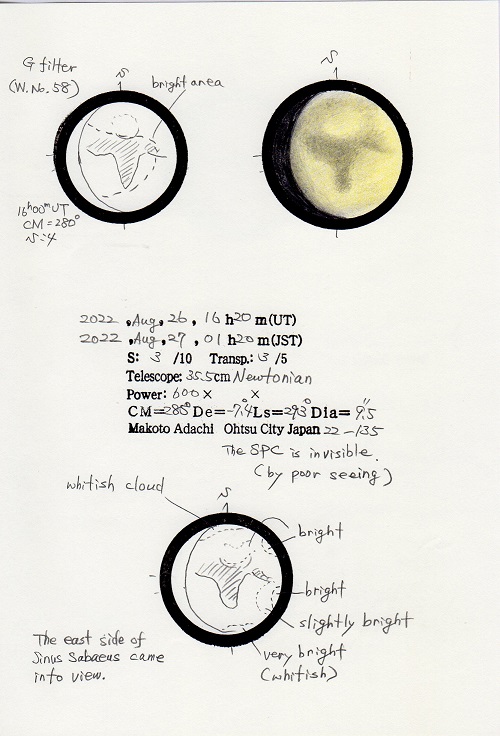 G filter
(W.No.58)
S
bright area
S
16h00mUT
CM=280°
S=4
2022, Aug, 26, 16 h20 m(UT)
2022, Aug, 27, 01 h20 m(JST)
S: 3 /10 Transp.: 3 /5
Telescope: 35.5cm Newtonian
Power: 600× ×
CM=285° De=-7.4 Ls=293° Dia= 9.5"
Makoto Adachi Ohtsu City Japan 22-135
The SPC is invisible.
(by poor seeing)
whitish cloud
S
bright
bright
slightly bright
very bright
(whitish)
The east side of
Sinus Sabaeus came
into view.